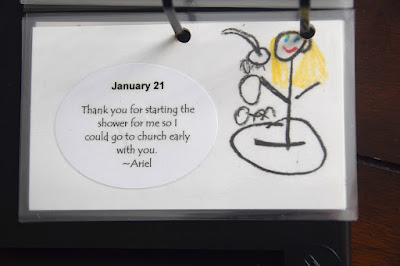 January 21
Thank you for starting the
shower for me so I
could go to church early
with you.
~Ariel